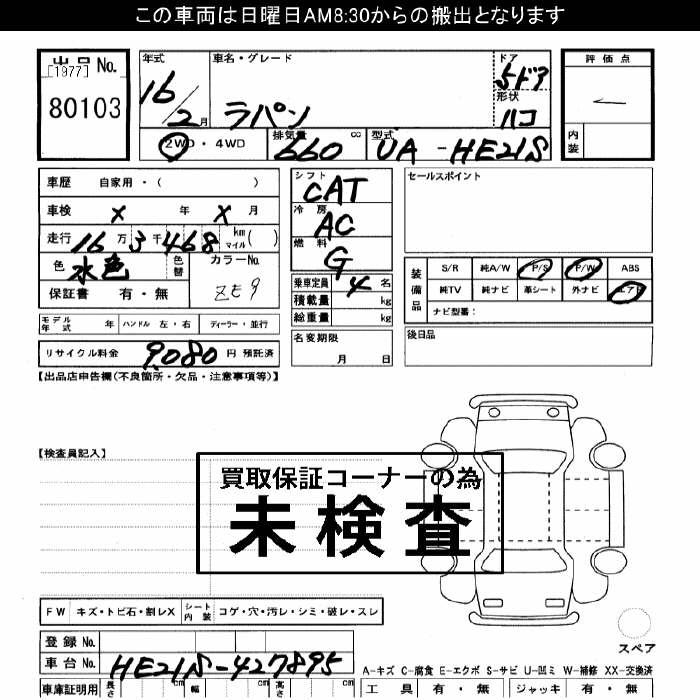 この車両は日曜日AM8:30からの搬出となります
出品No.
[1977]
80103
年式
16/2月
車名・グレード
ラパン
ドア
5ドア
形状
ハコ
評価点
内装
2WD・4WD
排気量
660 cc
型式
UA-HE21S
車歴 自家用・( )
車検 X 年 X 月
走行 16万3千468 km マイル( )
色 水色 色替
カラーNo.
ZE9
保証書 有・無
シフト
CAT
冷房
AC
燃料
G
乗車定員 4 名
積載量 kg
総重量 kg
セールスポイント
装備品
S/R 純A/W P/S P/W ABS
純TV 純ナビ 革シート 外ナビ エアB
ナビ型番:
モデル年式 年 ハンドル 左・右 ディーラー・並行
名変期限
月 日
後日品
リサイクル料金 9,080 円 預託済
【出品店申告欄(不良箇所・欠品・注意事項等)】
【検査員記入】
買取保証コーナーの為
未検査
FW キズ・トビ石・割レX シート内装 コゲ・穴・汚レ・シミ・破レ・スレ
登録No.
車台No. HE21S-427895
スペア
A-キズ C-腐食 E-エクボ S-サビ U-凹ミ W-補修 XX-交換済
車庫証明用 長さ cm 幅 cm 高さ cm
工具 有・無 ジャッキ 有・無